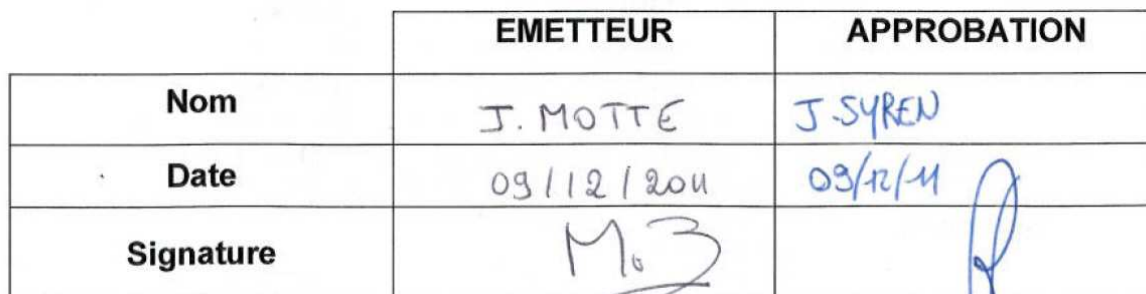 EMETTEUR APPROBATION
Nom J. MOTTE J.SYREN
Date 09/12/2011 09/12/11
Signature